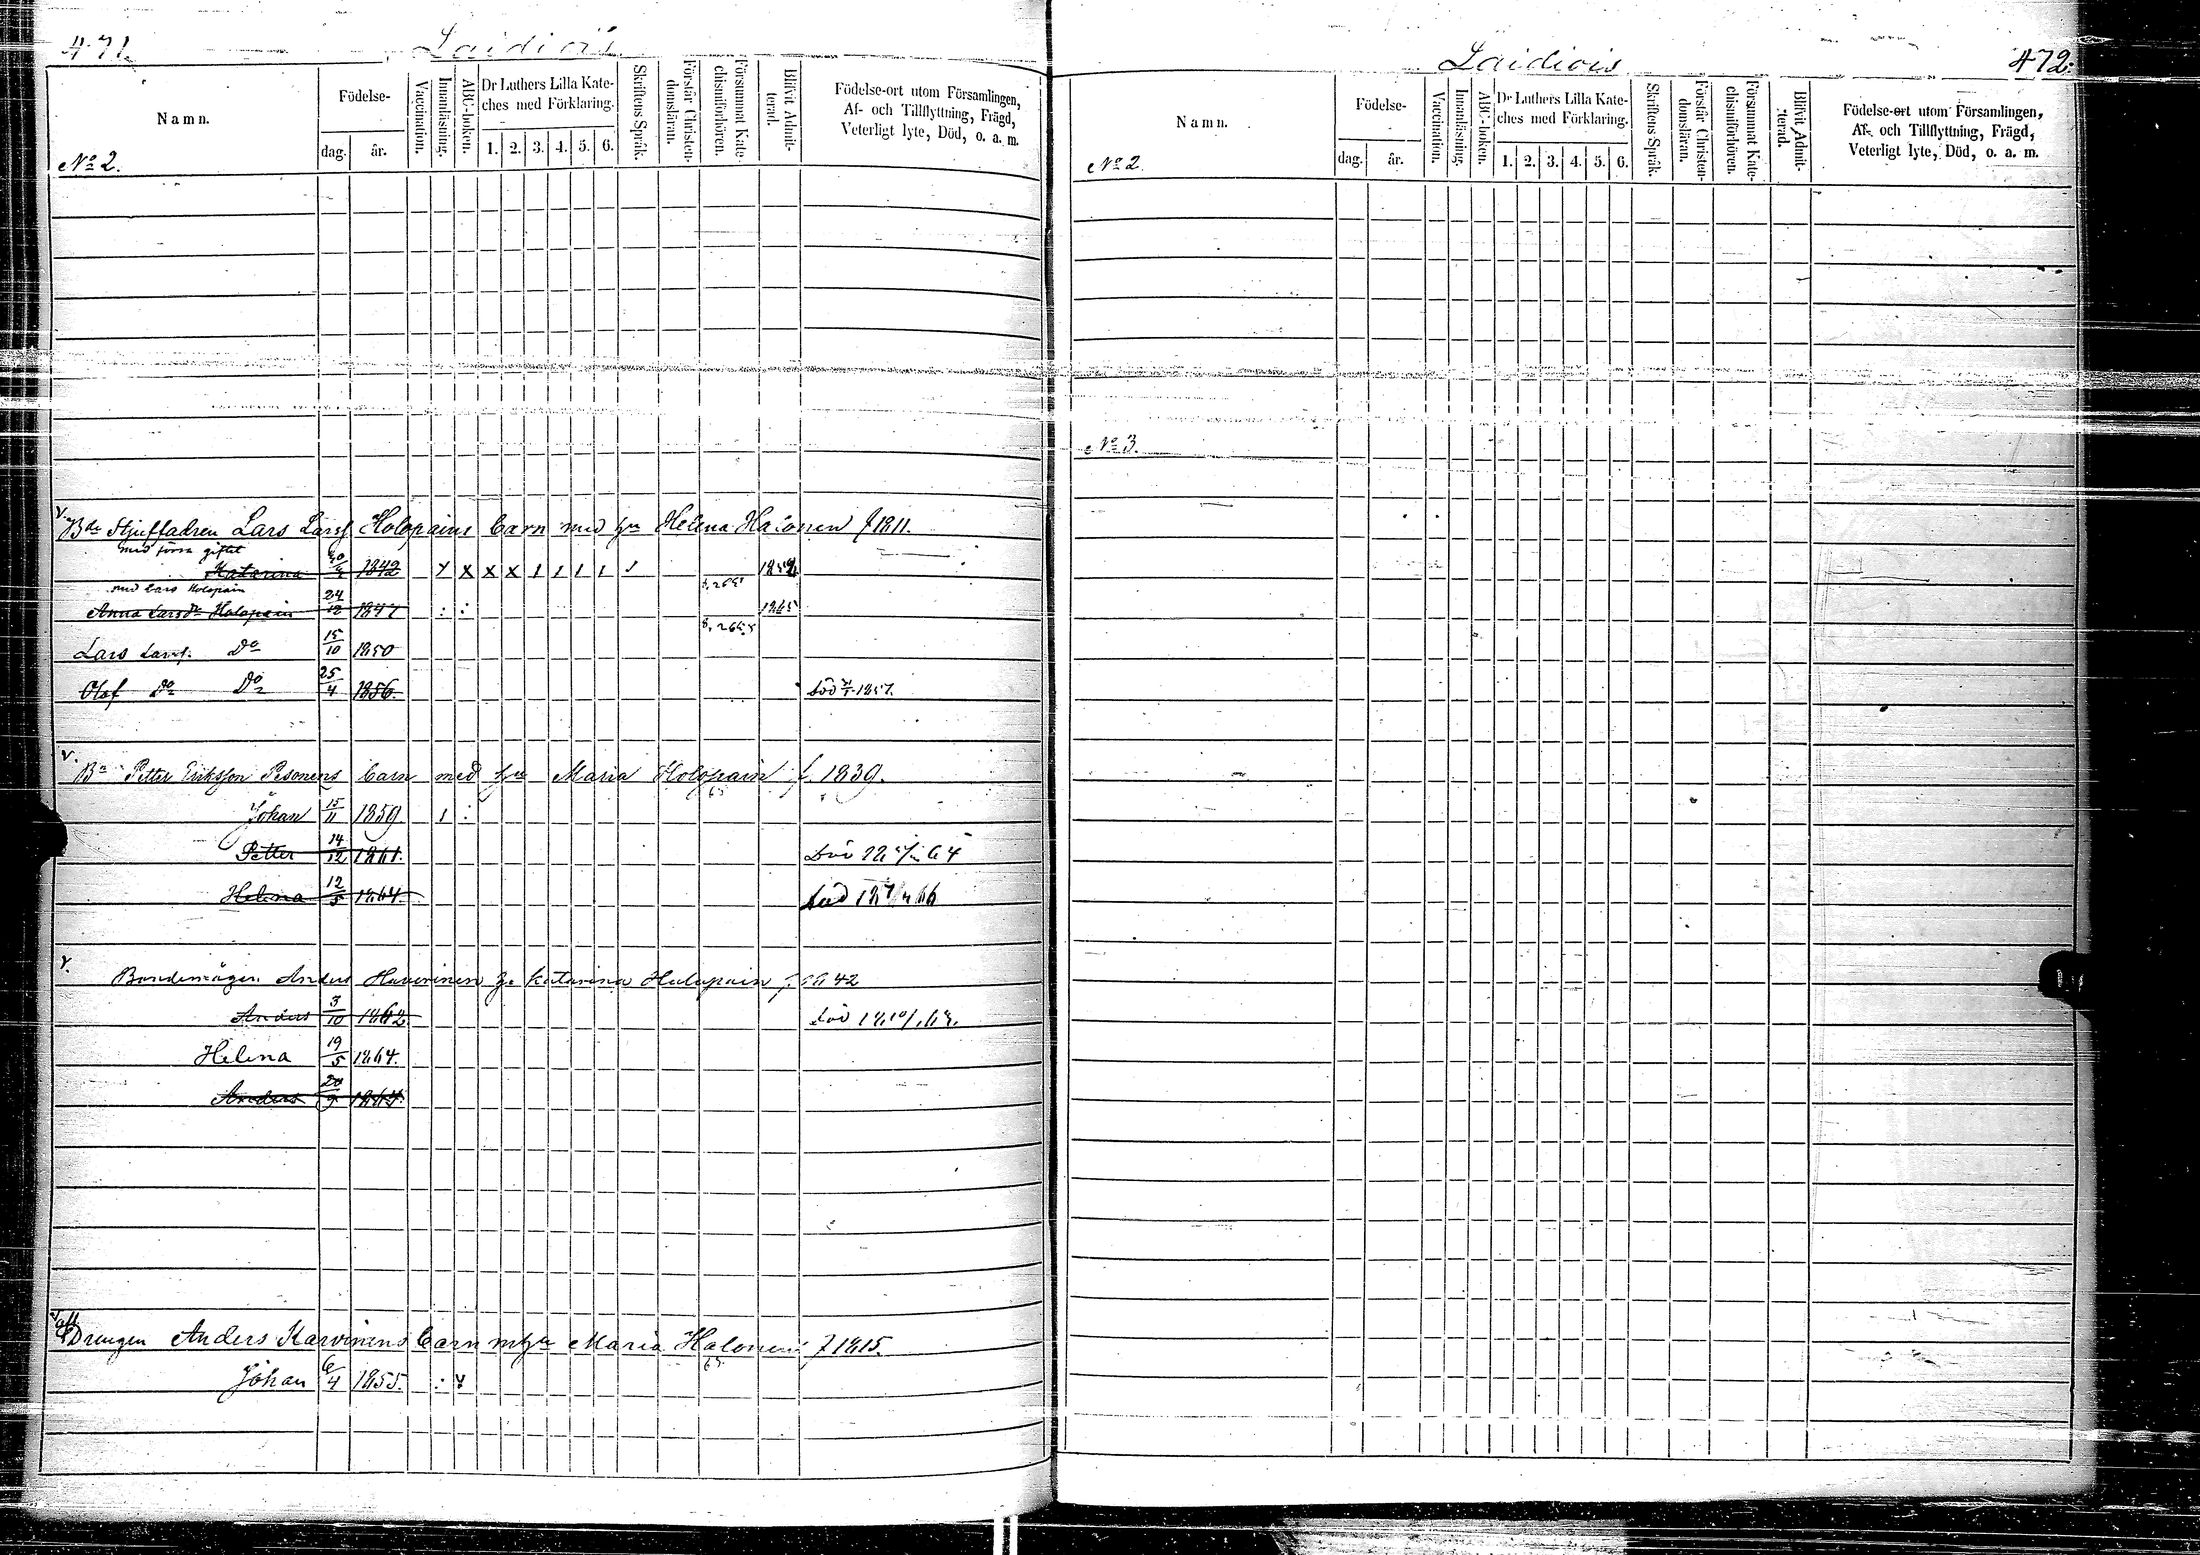 471.
Laidiois
Namn.
Födelse-
dag.
år.
Vaccination.
Innanläsning.
ABC-boken.
Dr Luthers Lilla Kate-
ches med Förklaring.
1. 2. 3. 4. 5. 6.
Skriftens Språk.
Förstår Christen-
domsläran.
Försummat Kate-
chismiförhören.
Blifvit Admit-
terad.
Födelse-ort utom Församlingen,
Af- och Tillflyttning, Frägd,
Veterligt lyte, Död, o. a. m.
No 2.
v. Bde Stjuffadren Lars Larsf Holopains barn med hu Helena Halonen f 1811.
Katarina 1842 x x x x 1 1 1 1 1
med Lars Holopain
Anna Larsdr Holopain 24/12 1847 : : 1865
Lars Larsf. Do 15/10 1850
Olof Do Do 25/4 1856. död 1857.
v.
Bn Petter Eriksson Pesonens barn med hu Maria Holopain f 1839.
Johan 15/11 1859 1 :
Petter 14/12 1861. Död 64
Helena 12/5 1864. död 66
v.
Anders Haverinen h. Katarina Holopain f. 1842
Anders 3/10 1862. död
Helena 19/5 1864.
Anders
Drengen Anders Karvinens barn m hu Maria Halonen f 1815.
Johan 6/4 1855. :
Laidiois
472.
Namn.
Födelse-
dag.
år.
Vaccination.
Innanläsning.
ABC-boken.
Dr Luthers Lilla Kate-
ches med Förklaring.
1. 2. 3. 4. 5. 6.
Skriftens Språk.
Förstår Christen-
domsläran.
Försummat Kate-
chismiförhören.
Blifvit Admit-
terad.
Födelse-ort utom Församlingen,
Af- och Tillflyttning, Frägd,
Veterligt lyte, Död, o. a. m.
No 2.
No 3.